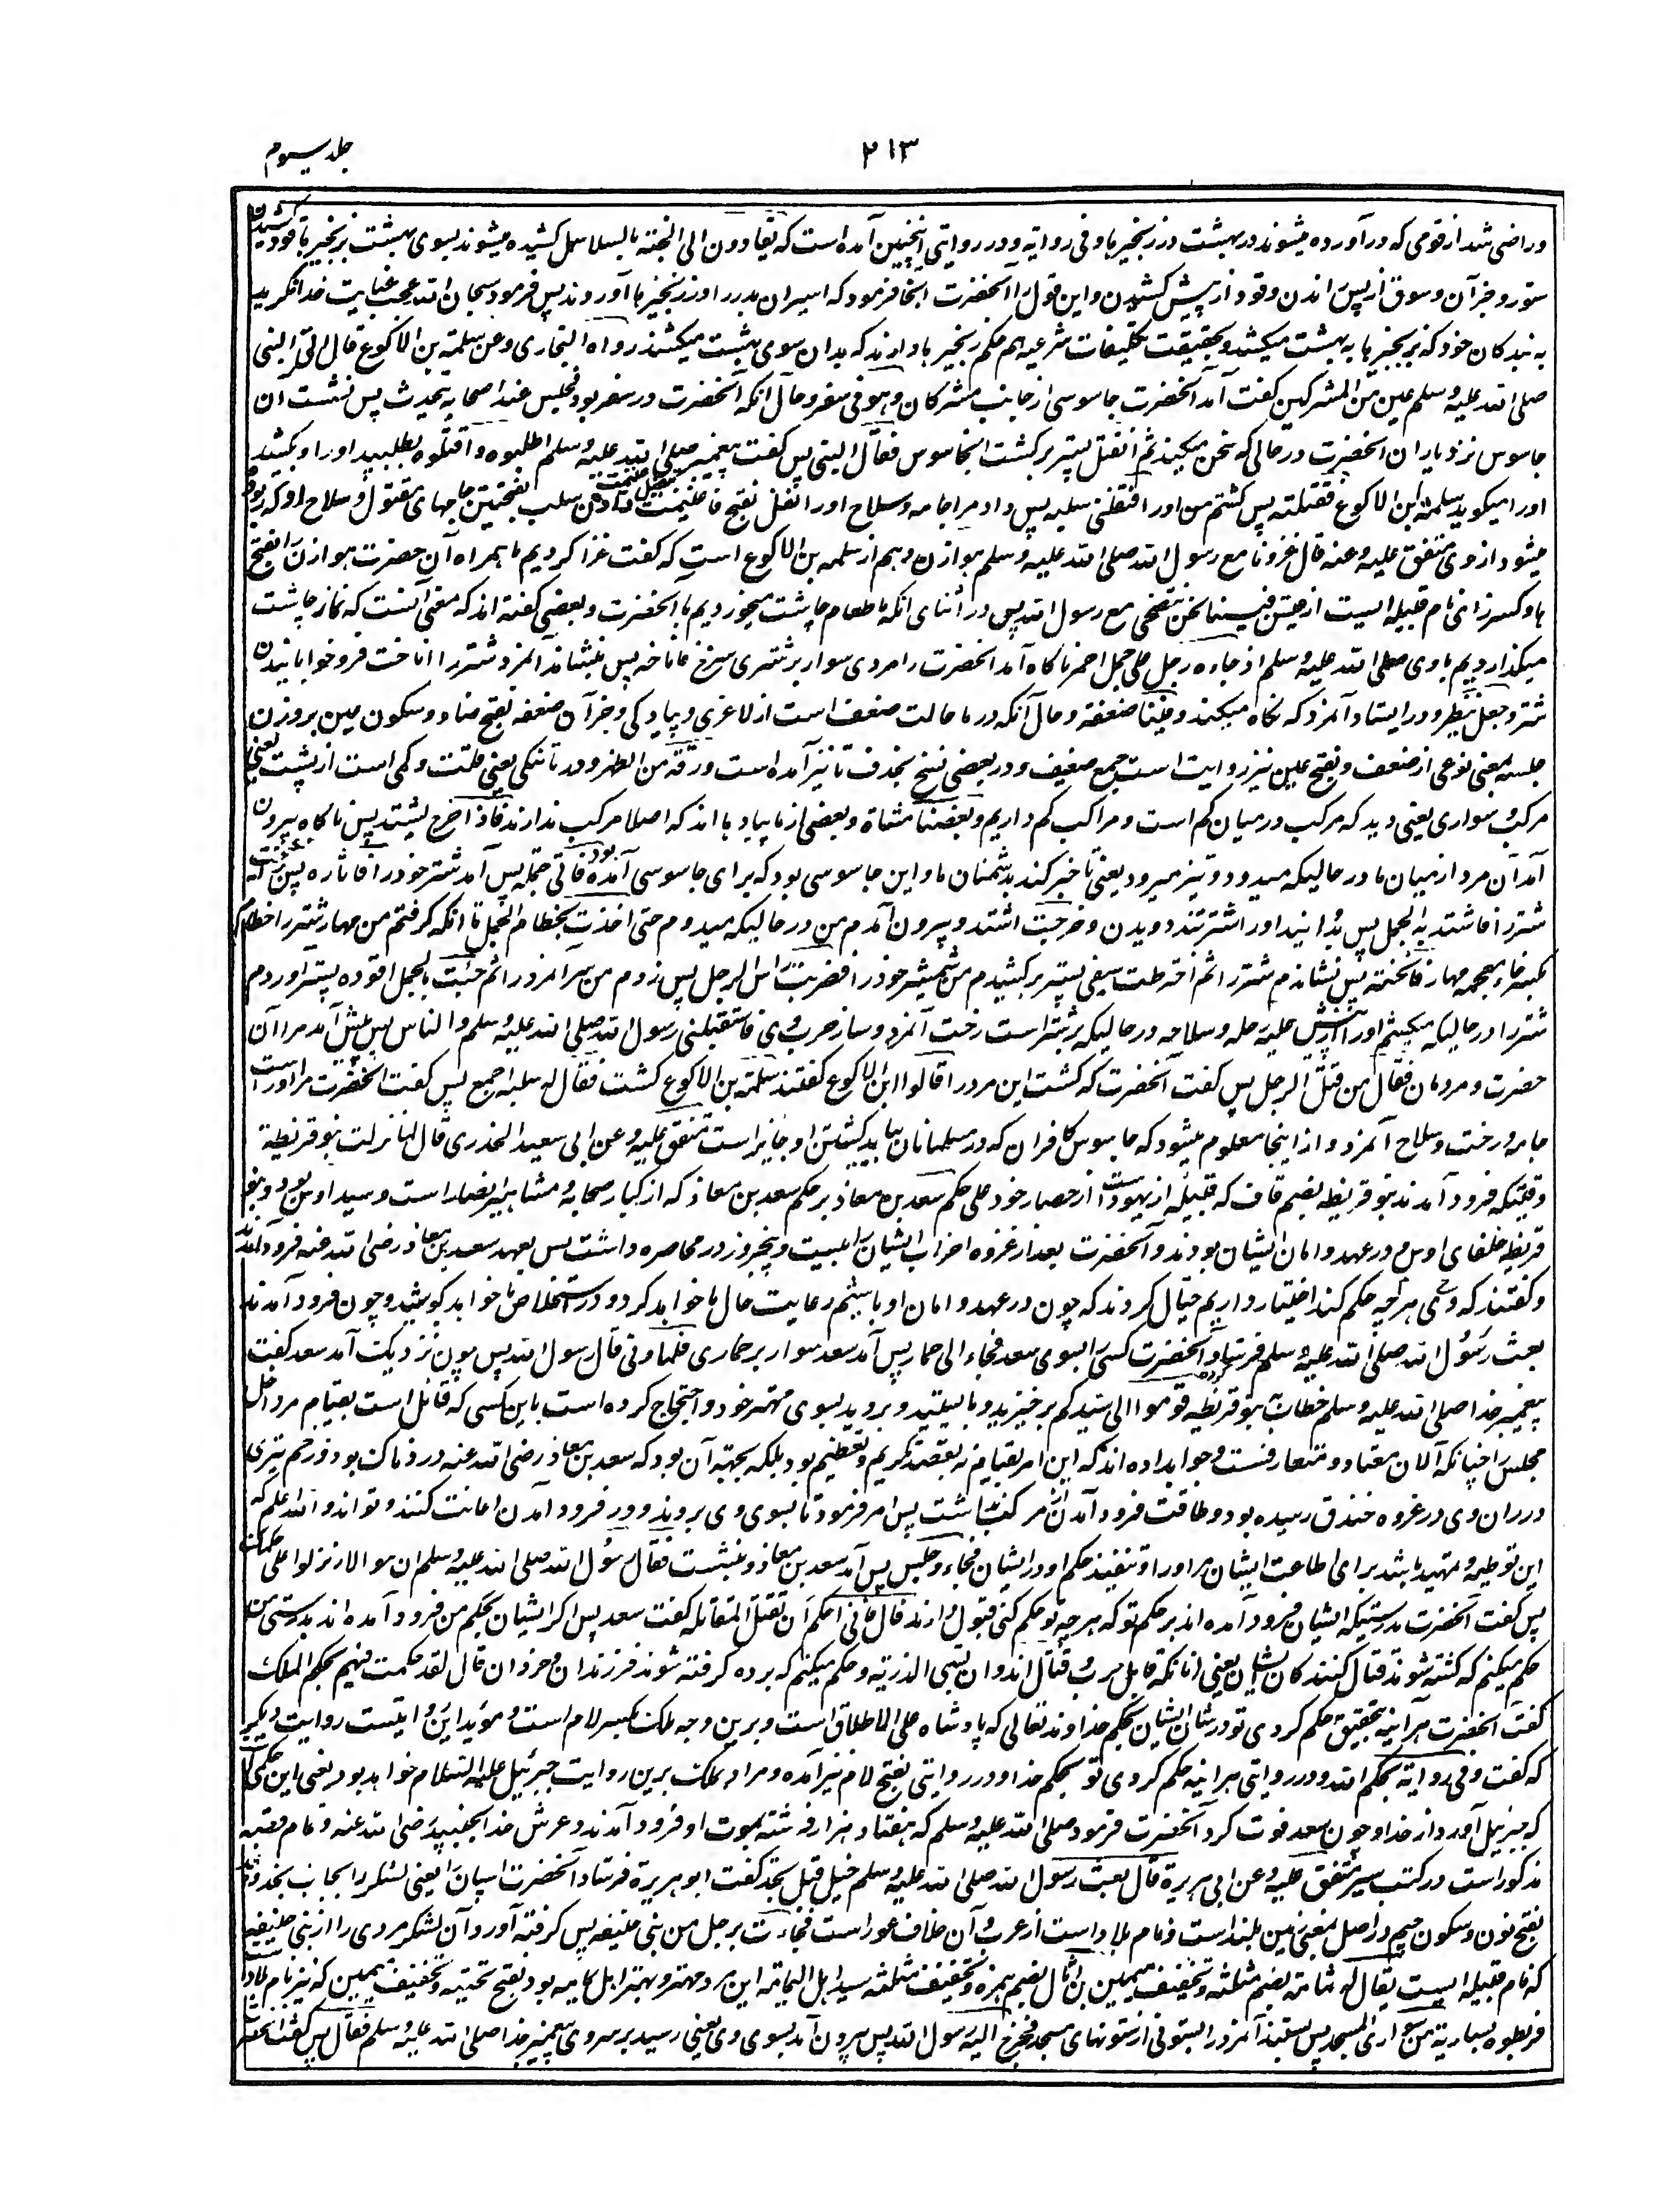 جلد سیوم
۲۱۳
و راضی شد از قومی که در آورده میشوند در بهشت در زنجیرها و فی روایة و در روایتی اینچنین آمده است که یقادون الی الجنة بالسلاسل کشیده میشوند بسوی بهشت بزنجیرها قود کشیدن
ستور و جز آن و سوق از پس راندن و قود از پیش کشیدن و این قول را آنحضرت آنجا فرمود که اسیران بدر را در زنجیرها آوردند پس فرمود سبحان الله عجب عنایت خدا نگرید
به بندگان خود که بزنجیرها به بهشت میکشد و بحقیقت تکلیفات شرعیه هم حکم زنجیرها دارند که بدان سوی بهشت میکشند رواه البخاری وعن سلمة بن الاکوع قال اتی النبی
صلی الله علیه وسلم عین من المشرکین گفت آمد آنحضرت جاسوسی از جانب مشرکان وهو فی سفر و حال آنکه آنحضرت در سفر بود فجلس عند اصحابه یتحدث پس نشست آن
جاسوس نزد یاران آنحضرت در حالی که سخن میکند ثم انفتل پستر برگشت آنجاسوس فقال النبی پس گفت پیغمبر صلی الله علیه وسلم اطلبوه واقتلوه بطلبید او را و بکشید
او را میگوید سلمة ابن الاکوع فقتلته پس کشتم من او را فنفلنی سلبه پس داد مرا جامه و سلاح او را نفل بفتح فا غنیمت دادن سلب بفتحتین جامهای مقتول و سلاح او که ربوده
میشود از وی متفق علیه وعنه قال غزونا مع رسول الله صلی الله علیه وسلم هوازن و هم از سلمه بن الاکوع است که گفت غزا کردیم ما همراه آن حضرت هوازن را بفتح
ها و کسر زا نام قبیله ایست از قیس فبینا نحن نتضحی مع رسول الله پس در اثنای آنکه ما طعام چاشت میخوردیم با آنحضرت و بعضی گفته اند که معنی آنست که نماز چاشت
میگذاردیم با وی صلی الله علیه وسلم اذ جاء رجل علی جمل احمر ناگاه آمد آنحضرت را مردی سوار بر شتری سرخ فاناخه پس بنشاند آنمرد شتر را اناخت فرو خوابانیدن
شتر وجعل ینظر و در ایستاد آنمرد که نگاه میکند وفینا ضعفة و حال آنکه در ما حالت ضعف است از لاغری و پیادگی و جز آن ضعفه بفتح ضاد و سکون عین بر وزن
جلسه بمعنی نوعی از ضعف و بفتح عین نیز روایت است جمع ضعیف و در بعضی نسخ بحذف تا نیز آمده است ورقة من الظهر و در ما تنکی یعنی قلت و کمی است از پشت یعنی
مرکب سواری یعنی دید که مرکب در میان کم است و مراکب کم داریم وبعضنا مشاة و بعضی از ما پیاده ها اند که اصلا مرکب ندارند فاذا خرج یشتد پس ناگاه بیرون
آمد آن مرد از میان ما در حالیکه میدود و تیز میرود یعنی تا خبر کند بدشمنان ما و این جاسوسی بود که برای جاسوسی آمده بود فاتی جمله پس آمد شتر خود را فاثاره پس برانگیخت
شتر را فاشتد به الجمل پس دوانید او را شتر تند دویدن وخرجت اشتد و بیرون آمدم من در حالیکه میدوم حتی اخذت بخطام الجمل تا آنکه گرفتم من مهار شتر را خطام
بکسر خاء معجمه مهار فانخته پس نشاندم شتر را ثم اخترطت سیفی پستر برکشیدم من شمشیر خود را فضربت راس الرجل پس زدم من سر آنمرد را ثم جئت بالجمل اقوده پستر آوردم
شتر را در حالیکه میکشم او را از پیش علیه رحله وسلاحه در حالیکه بر شتر است رخت آنمرد و ساز حرب وی فاستقبلنی رسول الله صلی الله علیه وسلم والناس پس پیش آمد مرا آن
حضرت و مردمان فقال من قتل الرجل پس گفت آنحضرت که کشت این مرد را قالوا ابن الاکوع گفتند سلمة بن الاکوع کشت فقال له سلبه اجمع پس گفت آنحضرت مر او راست
جامه و رخت و سلاح آنمرد و از اینجا معلوم میشود که جاسوس کافران که در مسلمانان بیاید کشتن او جایز است متفق علیه وعن ابی سعید الخدری قال لما نزلت بنو قریظة
وقتیکه فرود آمدند بنو قریظه بضم قاف که قبیله از یهودست از حصار خود علی حکم سعد بن معاذ بر حکم سعد بن معاذ که از کبار صحابه و مشاهیر انصار است و سید اوس بود و بنو
قریظه حلفای اوس و در عهد و امان ایشان بودند و آنحضرت بعد از غزوه احزاب ایشان را بیست و پنجروز در محاصره داشت پس بعهد سعد بن معاذ رضی الله عنه فرود آمدند
و گفتند که وی هر چه حکم کند اختیار داریم خیال کردند که چون در عهد و امان او باشیم رعایت حال ما خواهد کرد و در استخلاص ما خواهد کوشید و چون فرود آمدند
بعث رسول الله صلی الله علیه وسلم فرستاد آنحضرت کسی را بسوی سعد فجاء الی حمار پس آمد سعد سوار بر حماری فلما دنی قال رسول الله پس چون نزدیک آمد سعد گفت
پیغمبر خدا صلی الله علیه وسلم خطاب به بنو قریظه قوموا الی سیدکم برخیزید و بایستید و بروید بسوی مهتر خود و احتجاج کرده است باین کسی که قائل است بقیام مر داخل
مجلس را چنانکه الان معتاد و متعارفست و جواب داده اند که این امر بقیام نه بقصد تکریم و تعظیم بود بلکه بجهت آن بود که سعد بن معاذ رضی الله عنه دردناک بود و زخم تیری
در ران وی در غزوه خندق رسیده بود و طاقت فرود آمدن از مرکب نداشت پس امر فرمود تا بسوی وی بروند و در فرود آمدن اعانت کنند و تواند والله اعلم که
این توطیه و تمهید باشد برای اطاعت ایشان مر او را و تنفیذ حکم او در ایشان فجاء وجلس پس آمد سعد بن معاذ و بنشست فقال رسول الله صلی الله علیه وسلم ان هؤلاء نزلوا علی حکمک
پس گفت آنحضرت بدرستیکه ایشان فرود آمده اند بر حکم تو که هر چه تو حکم کنی قبول دارند قال فانی احکم ان تقتل المقاتلة گفت سعد پس اگر ایشان بحکم من فرود آمده اند بدرستی من
حکم میکنم که کشته شوند قتال کنندگان ایشان یعنی آنانکه قابل حرب و قتال اند وان تسبی الذریة و حکم میکنم که برده گرفته شوند فرزندان خردان قال لقد حکمت فیهم بحکم الملک
گفت آنحضرت هر آینه بتحقیق حکم کردی تو در شان ایشان بحکم خداوند تعالی که پادشاه علی الاطلاق است و برین وجه ملک بکسر لام است و مؤید این روایتست روایت دیگر
که گفت وفی روایة بحکم الله و در روایتی هر اینه حکم کردی تو بحکم خدا و در روایتی بفتح لام نیز آمده و مراد بملک برین روایت جبرئیل علیه السلام خواهد بود یعنی این حکمی است
که جبرئیل آورد از خدا و چون سعد فوت کرد آنحضرت فرمود صلی الله علیه وسلم که هفتاد هزار فرشته بموت او فرود آمدند و عرش خدا بجنبید رضی الله عنه و تمام قصه
مذکور است در کتب سیر متفق علیه وعن ابی هریرة قال بعث رسول الله صلی الله علیه وسلم خیلا قبل نجد گفت ابو هریرة فرستاد آنحضرت اسپان را یعنی لشکر را بجانب نجد و نجد
بفتح نون و سکون جیم در اصل بمعنی زمین بلند است و نام بلاد است از عرب و آن خلاف غور است فجاءت برجل من بنی حنیفه پس گرفته آورد آن لشکر مردی را از بنی حنیفه
که نام قبیله ایست یقال له ثمامة بضم مثلثه و تخفیف میمین بن اثال بضم همزه و تخفیف مثلثه سید اهل الیمامة این مرد مهتر و بهتر اهل یمامه بود بفتح تحتیه و تخفیف میمین که نیز نام بلاد است
فربطوه بساریة من سواری المسجد پس بستند آنمرد را بستونی از ستونهای مسجد فخرج الیه رسول الله پس بیرون آمد بسوی وی یعنی رسید بر سر وی پیغمبر خدا صلی الله علیه وسلم فقال پس گفت آنحضرت